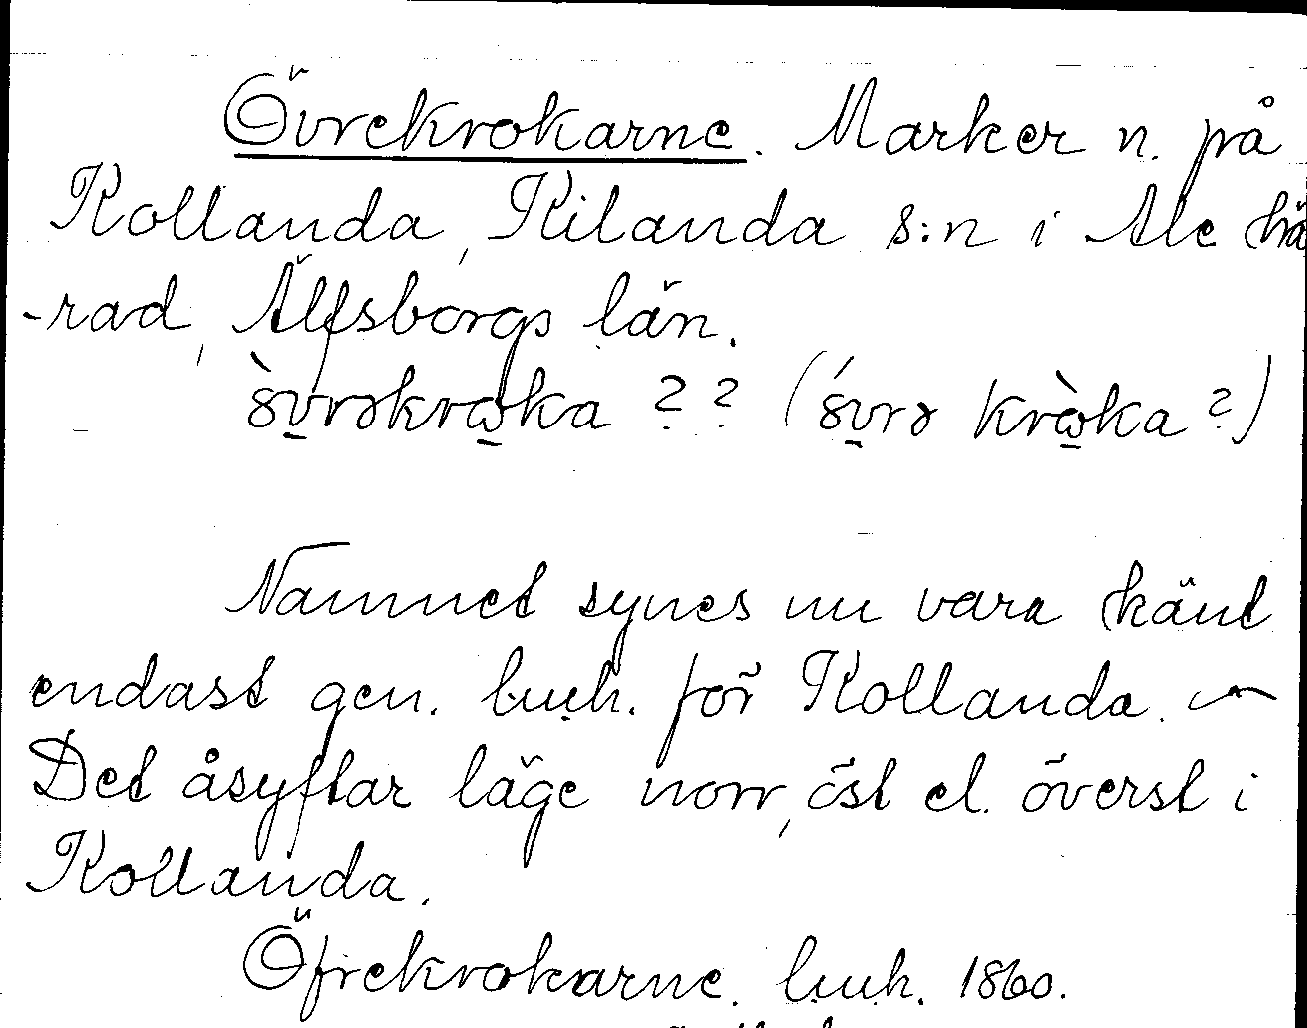 Övrekrokarne. Marker n. på
Kollanda, Kilanda s:n i Ale hä
-rad, Älfsborgs län.
? ? ( ?)
Namnet synes nu vara känt
endast gen. luuh. för Kollanda. —
Det åsyftar läge norr, öst el. överst i
Kollanda.
Öfrekrokarne. luuh. 1860.